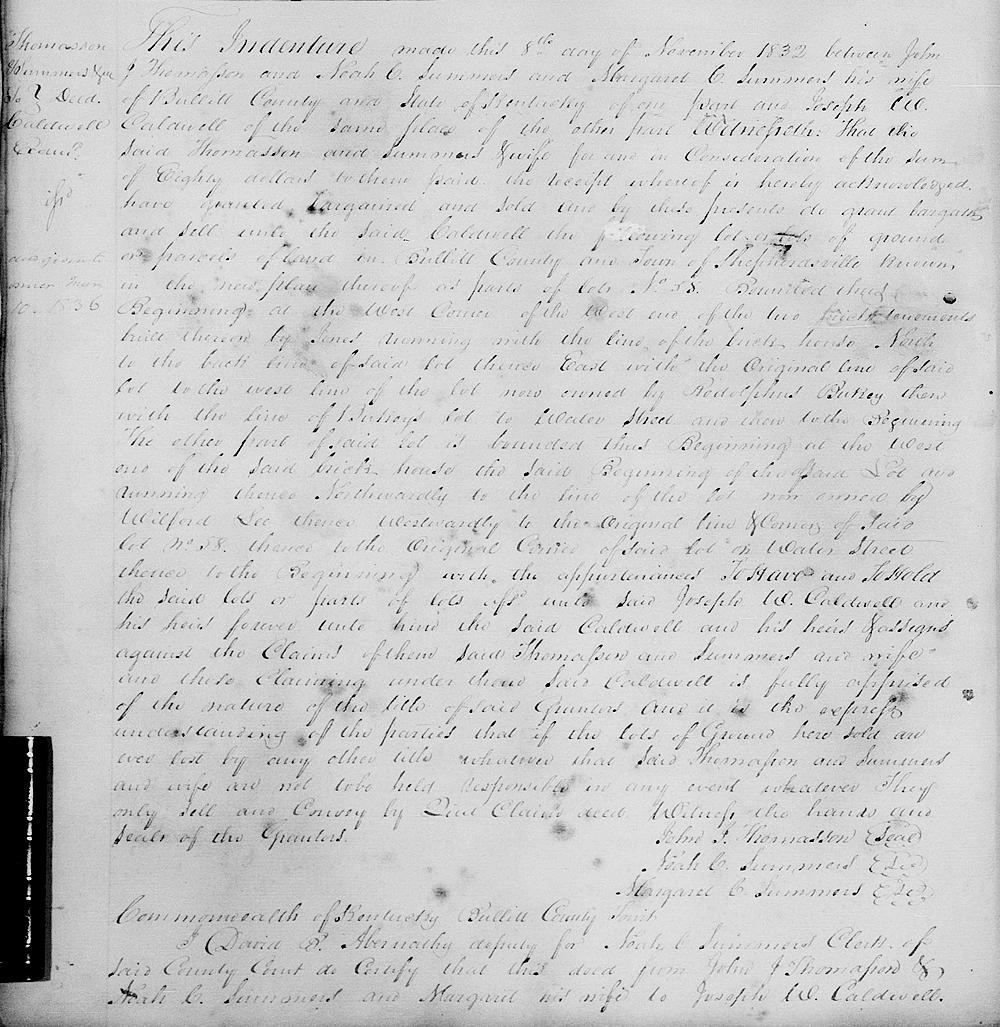 Thomasson
& Summers &c
To Deed.
Caldwell
Exand.
This Indenture made this 8th day of November 1832 between John
J Thomasson and Noah C. Summers and Margaret C. Summers his wife
of Bullitt County and State of Kentucky of one part and Joseph W.
Caldwell of the same place of the other part Witnesseth: That the
said Thomasson and Summers & wife for and in Consideration of the sum
of Eighty dollars to them paid. the receipt whereof is hereby acknowledged.
have granted bargained and sold and by these presents do grant bargain
and sell unto the said Caldwell the following lot or lots of ground
or parcels of land in Bullitt County and Town of Shepherdsville known
in the new plan thereof as parts of lots No. 58. Bounded thus
10. 1836
Beginning at the West Corner of the West end of the two brick tenements
built thereon by Jones running with the line of the brick house North
to the back line of said lot thence East with the Original line of said
lot to the west line of the lot now owned by Rodolphus Buckey then
with the line of Buckeys lot to Water Street and then to the Beginning
The other part of said lot is bounded thus Beginning at the West
end of the said brick house the said Beginning of the said Lot and
running thence Northwardly to the line of the lot now owned by
Wilford Lee thence Westwardly to the Original line & Corner of said
lot No. 58. thence to the Original Corner of said lot on Water Street
thence to the Beginning with the appurtenances To Have and To Hold
the said lots or parts of lots afsd unto said Joseph W. Caldwell and
his heirs forever unto him the said Caldwell and his heirs & assigns
against the Claims of them said Thomasson and Summers and wife
and those Claiming under them said Caldwell is fully apprised
of the nature of the title of said Grantors and it is the express
understanding of the parties that if the lots of Ground here sold are
ever lost by any other title whatever that said Thomasson and Summers
and wife are not to be held responsible in any event whatever They
only sell and Convey by Quit Claim deed. Witness the hands and
seals of the Grantors.
John J. Thomasson (Seal)
Noah C. Summers (Seal)
Margaret C. Summers (Seal)
Commonwealth of Kentucky Bullitt County Sct.
I David P. Abernathy deputy for Noah C Summers Clerk of
said County Court do Certify that this deed from John J Thomasson &
Noah C. Summers and Margaret his wife to Joseph W. Caldwell.